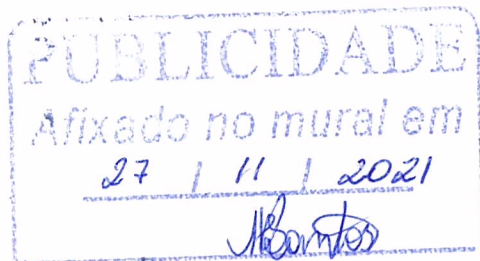 PUBLICIDADE
Afixado no mural em
27 / 11 / 2021